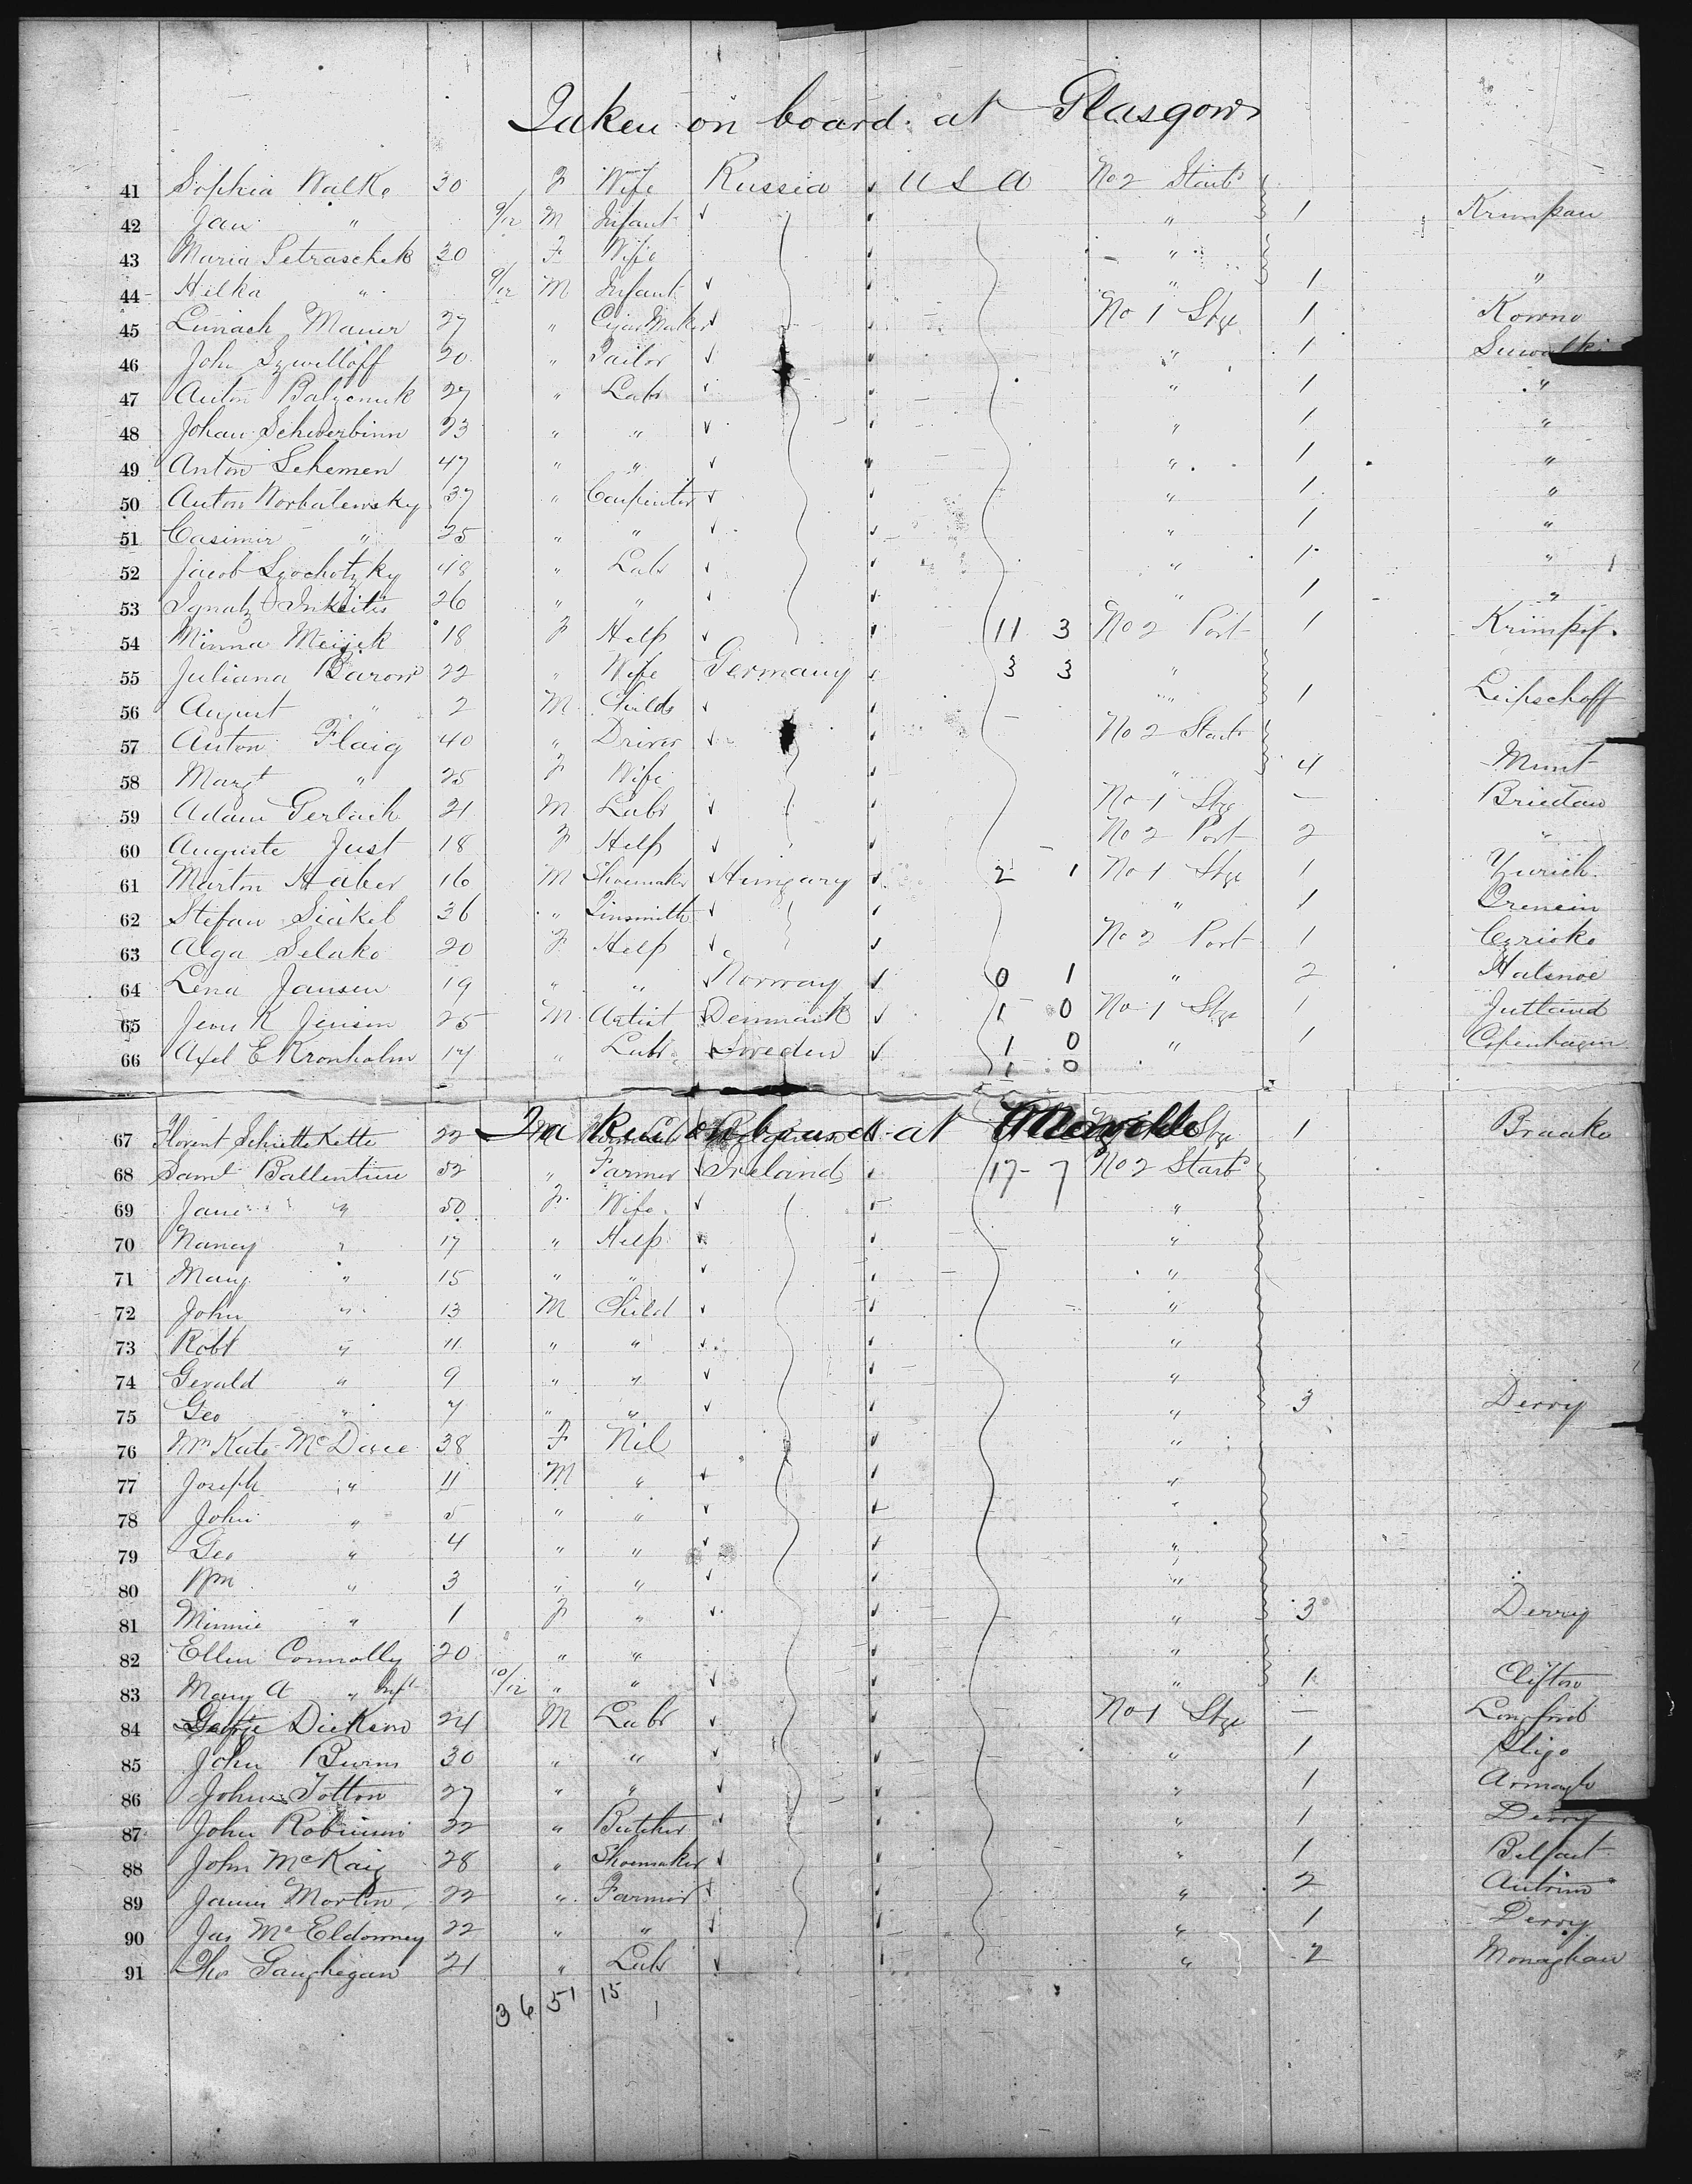 Taken on board at Glasgow
41 Sophia Walke 30 F Wife Russia U S A No 2 Starb
42 Jan " 9/12 M Infant " 1 Krimpau
43 Maria Petraschek 30 F Wife "
44 Hilka " 9/12 M Infant " 1 "
45 Mauer 27 " Cigar Maker No 1 Stge 1 Kowno
46 John Szwilloff 20 " Tailor " 1 Suwalki
47 Anton 27 " Labr " 1 "
48 Johan Schwerbinn 23 " " " 1 "
49 Anton Schemen 47 " " " 1 "
50 Anton Norbutewsky 37 " Carpenter " 1 "
51 Casimir " 25 " " " 1 "
52 Jacob 48 " Labr " 1 "
53 Ignatz 26 " " " 1 "
54 Minna 18 F Help 11 3 No 2 Port 1
55 Juliana Baron 22 " Wife Germany 3 3 "
56 August " 2 M Childs " 1 Leipschoff
57 Anton Flaig 40 " Driver No 2 Starb
58 Margt " 25 F Wife " 4
59 Adam Gerlach 21 M Labr No 1 Stge —
60 Auguste Just 18 F Help No 2 Port 2 "
61 Marton Haber 16 M Shoemaker Hungary 2 1 No 1 Stge 1 Zurich
62 Stefan 36 " Tinsmith " 1
63 Alga Selako 20 F Help No 2 Port 1
64 Lena Jansen 19 " " Norway 0 1 " 2 Halsnoe
65 Jens K Jensen 25 M Artist Denmark 1 0 No 1 Stge 1 Jutland
66 Axel E Kronholm 17 " Labr Sweden 1 0 " 1 Copenhagen
1 0
67 Florent 22 M Stge 1
Taken on board at Moville
68 Saml Ballentine 52 " Farmer Ireland 17 - 7 No 2 Starb
69 Jane " 50 F Wife "
70 Nancy " 17 " Help "
71 Mary " 15 " " "
72 John " 13 M Child "
73 Robt " 11 " " "
74 Gerald " 9 " " "
75 Geo " 7 " " " 3 Derry
76 Mrs Kate 38 F Nil "
77 Joseph " 11 M " "
78 John " 5 " " "
79 Geo " 4 " " "
80 Wm " 3 " " "
81 Minnie " 1 F " " 3 Derry
82 Ellen Connolly 20 " " "
83 Mary A " Inft 10/12 " " " 1 Clifton
84 George Dickson 24 M Labr No 1 Stge — Longford
85 John Burns 30 " " " 1 Sligo
86 John Totton 27 " " " 1 Armagh
87 John Robinson 22 " Butcher " 1 Derry
88 John McKaig 28 " Shoemaker " 1 Belfast
89 James Morton 22 " Farmer " 2 Antrim
90 Jas McEldowney 22 " " " 1 Derry
91 Thos Gaughegan 21 " Labr " 2 Monaghan
36 51 15